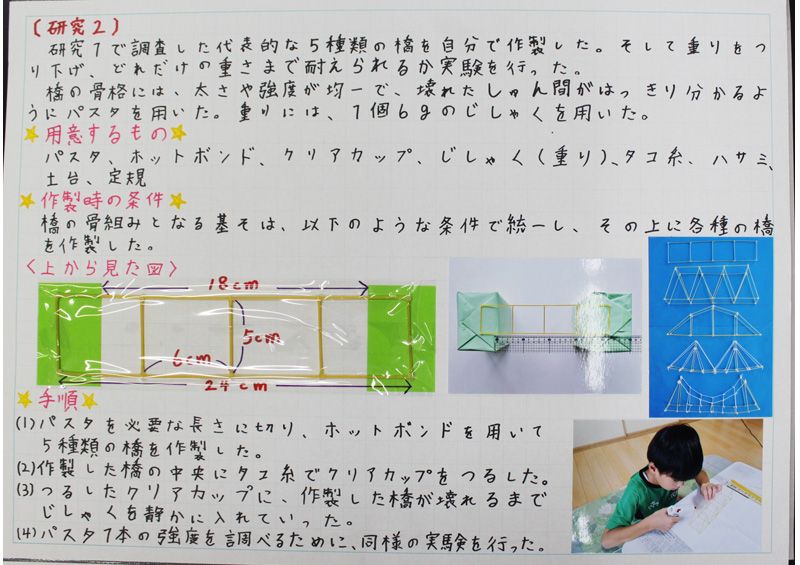 (研究2)
研究1で調査した代表的な5種類の橋を自分で作製した。そして重りをつ
り下げ、どれだけの重さまで耐えられるか実験を行った。
橋の骨格には、太さや強度が均一で、壊れたしゅん間がはっきり分かるよ
うにパスタを用いた。重りには、1個6gのじしゃくを用いた。
★用意するもの★
パスタ、ホットボンド、クリアカップ、じしゃく(重り)、タコ糸、ハサミ、
土台、定規
★作製時の条件★
橋の骨組みとなる基そは、以下のような条件で統一し、その上に各種の橋
を作製した。
〈上から見た図〉
18cm
5cm
6cm
24cm
★手順★
(1)パスタを必要な長さに切り、ホットボンドを用いて
5種類の橋を作製した。
(2)作製した橋の中央にタコ糸でクリアカップをつるした。
(3)つるしたクリアカップに、作製した橋が壊れるまで
じしゃくを静かに入れていった。
(4)パスタ1本の強度を調べるために、同様の実験を行った。